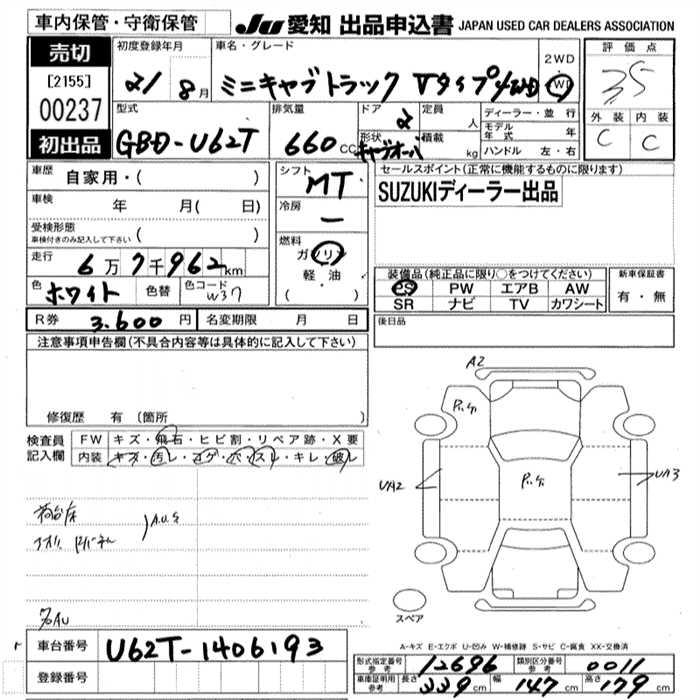 車内保管・守衛保管
JU 愛知 出品申込書 JAPAN USED CAR DEALERS ASSOCIATION
売切
[2155]
00237
初出品
初度登録年月
21 8月
車名・グレード
ミニキャブトラック Vタイプ4WD
2WD
4WD
評価点
3.5
外装 内装
C C
型式
GBD-U62T
排気量
660cc
ドア
2
形状
キャブオーバ
定員
人
積載
kg
ディーラー・並行
モデル年式 年
ハンドル 左・右
車歴
自家用・( )
車検
年 月( 日)
受検形態
車検付きのみ記入して下さい ( )
走行
6万7千962km
色
ホワイト
色替
色コード
W37
R券 3.600円
名変期限 月 日
シフト
MT
冷房
ー
燃料
ガソリン
軽・油
( )
セールスポイント(正常に機能するものに限ります)
SUZUKIディーラー出品
装備品(純正品に限り○をつけてください)
PS PW エアB AW
SR ナビ TV カワシート
新車保証書
有・無
後日品
注意事項申告欄(不具合内容等は具体的に記入して下さい)
修復歴 有 (箇所
検査員記入欄
FW キズ・飛石・ヒビ割・リペア跡・X要
内装 キズ・汚レ・コゲ・穴・スレ・キレ・破レ
荷台床
アオリ
AUS
A2
UA2
UA3
スペア
A-キズ E-エクボ U-凹み W-補修跡 S-サビ C-腐食 XX-交換済
車台番号 U62T-1406193
登録番号
形式指定番号 参考 12696
類別区分番号 参考 0011
車庫証明用 参考 長さ 339cm 幅 147cm 高さ 179cm